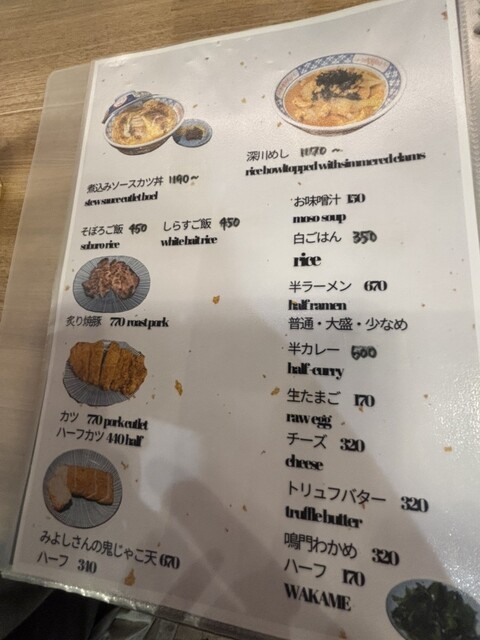 煮込みソースカツ丼 1190〜
stew sauce cutlet bowl
そぼろご飯 450
soboro rice
しらすご飯 450
white bait rice
炙り焼豚 770 roast pork
カツ 770 pork cutlet
ハーフカツ 440 half
みよしさんの鬼じゃこ天 670
ハーフ 340
深川めし 1070 〜
rice bowl topped with simmered clams
お味噌汁 150
moso soup
白ごはん 350
rice
半ラーメン 670
half ramen
普通・大盛・少なめ
半カレー 600
half-curry
生たまご 170
raw egg
チーズ 320
cheese
トリュフバター 320
truffle butter
鳴門わかめ 320
ハーフ 170
WAKAME